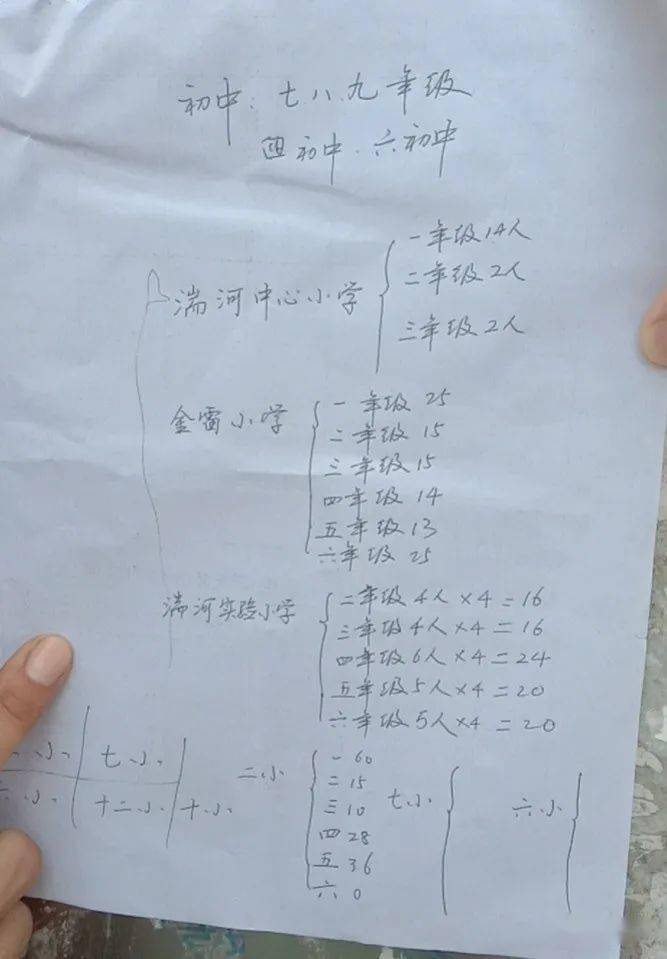 初中：七八.九年级
四初中.六初中
湍河中心小学
一年级14人
二年级2人
三年级2人
金雷小学
一年级 25
二年级 15
三年级 15
四年级 14
五年级 13
六年级 25
湍河实验小学
二年级4人×4=16
三年级4人×4=16
四年级6人×4=24
五年级5人×4=20
六年级5人×4=20
小 七小
六小 十二小 十小
二小
一 60
二 15
三 10
四 28
五 36
六 0
七小
六小